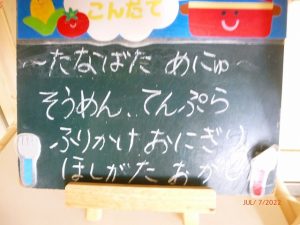 こんだて
~たなばた めにゅ~
そうめん、てんぷら
ふりかけおにぎり
ほしがた おかし
JUL/ 7/2022